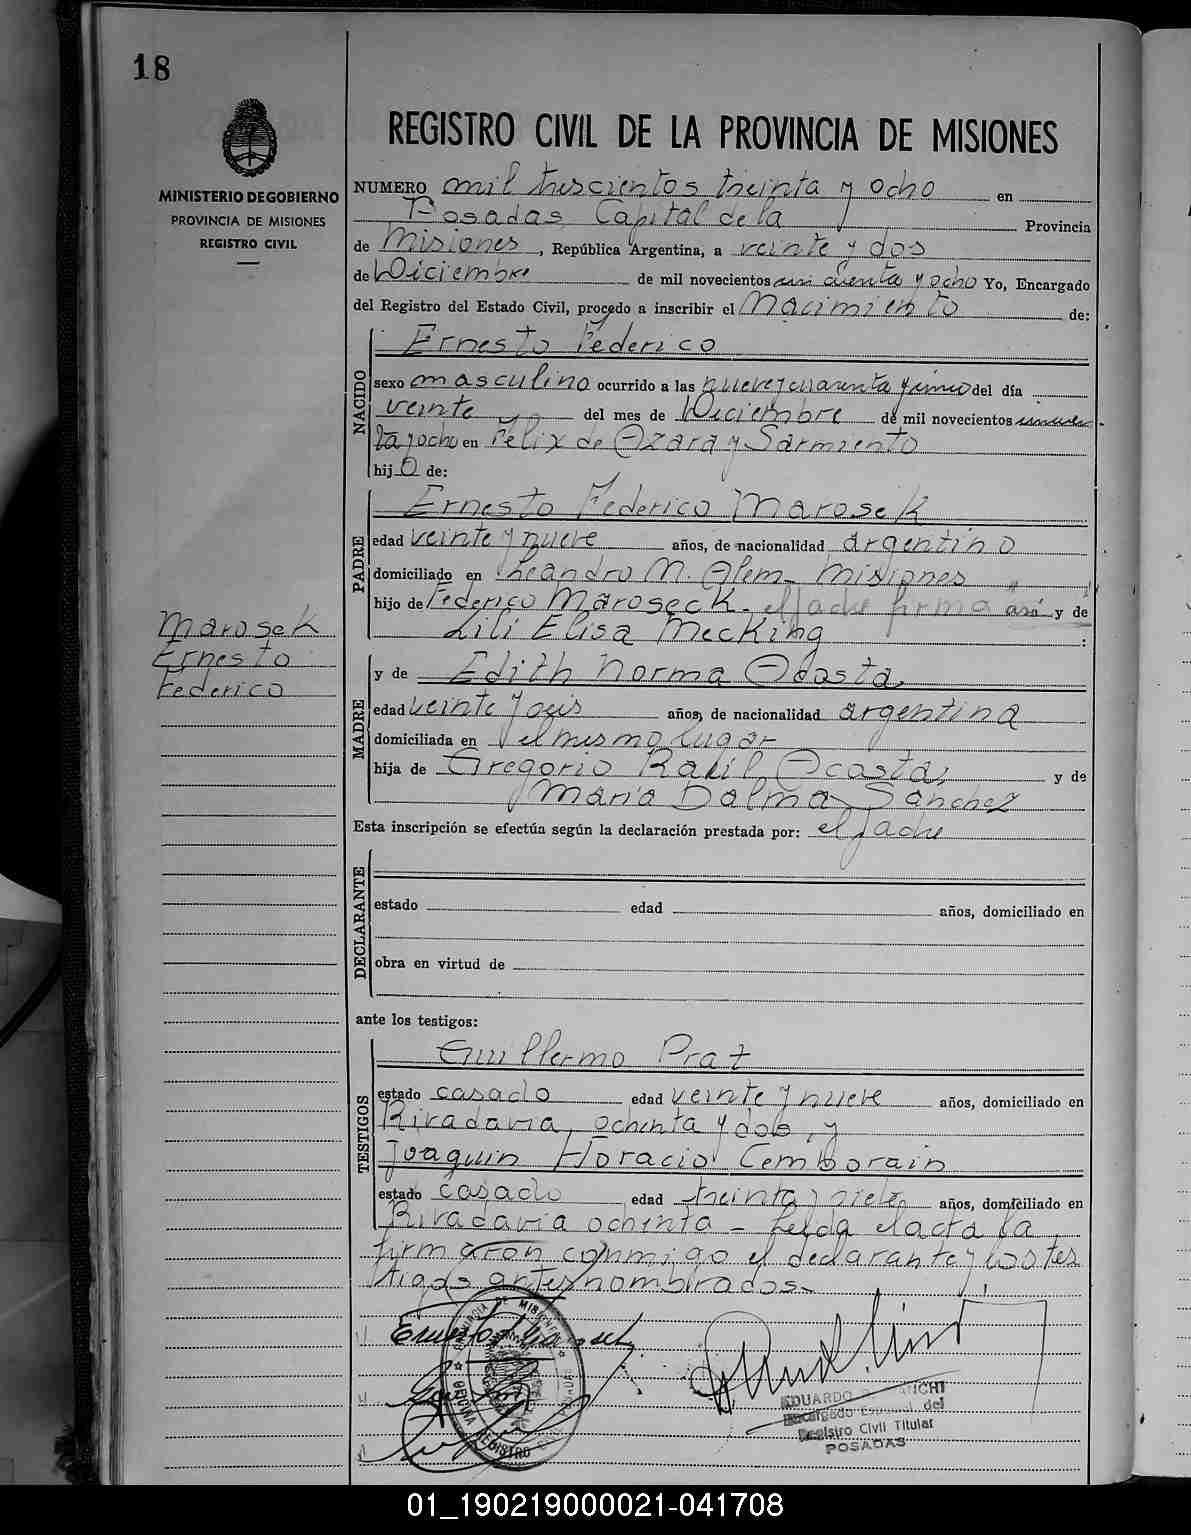 18
REGISTRO CIVIL DE LA PROVINCIA DE MISIONES
MINISTERIO DE GOBIERNO
PROVINCIA DE MISIONES
REGISTRO CIVIL
NUMERO mil trescientos treinta y ocho en
Posadas Capital de la Provincia
de Misiones, República Argentina, a veinte y dos
de Diciembre de mil novecientos cincuenta y ocho Yo, Encargado
del Registro del Estado Civil, procedo a inscribir el Nacimiento de:
NACIDO
Ernesto Federico
sexo masculino ocurrido a las nueve y cuarenta y cinco del día
veinte del mes de Diciembre de mil novecientos cincuen
ta y ocho en Felix de Azara y Sarmiento
hijo de:
PADRE
Ernesto Federico Marosek
edad veinte y nueve años, de nacionalidad argentino
domiciliado en Leandro N. Alem - Misiones
hijo de Federico Maroseck - el padre firma así y de
Lili Elisa Mecking :
Marosek
Ernesto
Federico
MADRE
y de Edith Norma Acosta,
edad veinte y seis años, de nacionalidad argentina
domiciliada en el mismo lugar
hija de Gregorio Raúl Acosta, y de
María Dalma Sánchez
Esta inscripción se efectúa según la declaración prestada por: el padre
DECLARANTE
estado edad años, domiciliado en
obra en virtud de
ante los testigos:
TESTIGOS
Guillermo Prat
estado casado edad veinte y nueve años, domiciliado en
Rivadavia, ochenta y dos, y
Joaquin Horacio Cemborain
estado casado edad treinta y siete años, domiciliado en
Rivadavia ochenta - Leída el acta la
firmaron conmigo el declarante y los tes
tigos antes nombrados.-
PROVINCIA DE MISIONES
REGISTRO
EDUARDO
Encargado Especial del
Registro Civil Titular
POSADAS
01_190219000021-041708